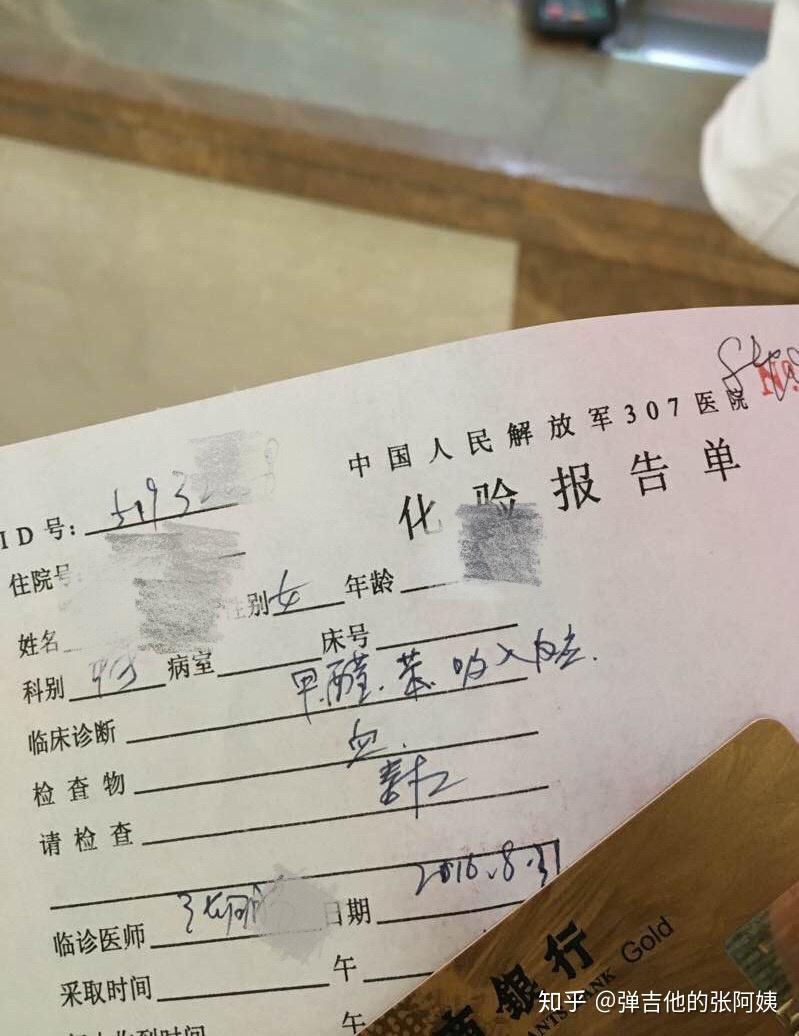 中国人民解放军307医院
化验报告单
ID号: 5193
住院号
姓名 性别 女 年龄
科别 病室 床号
临床诊断 甲醛.苯.吸入
检查物 血.
请检查
临诊医师 日期 2016.8.31
采取时间 午
午
銀行
Gold
知乎 @弹吉他的张阿姨